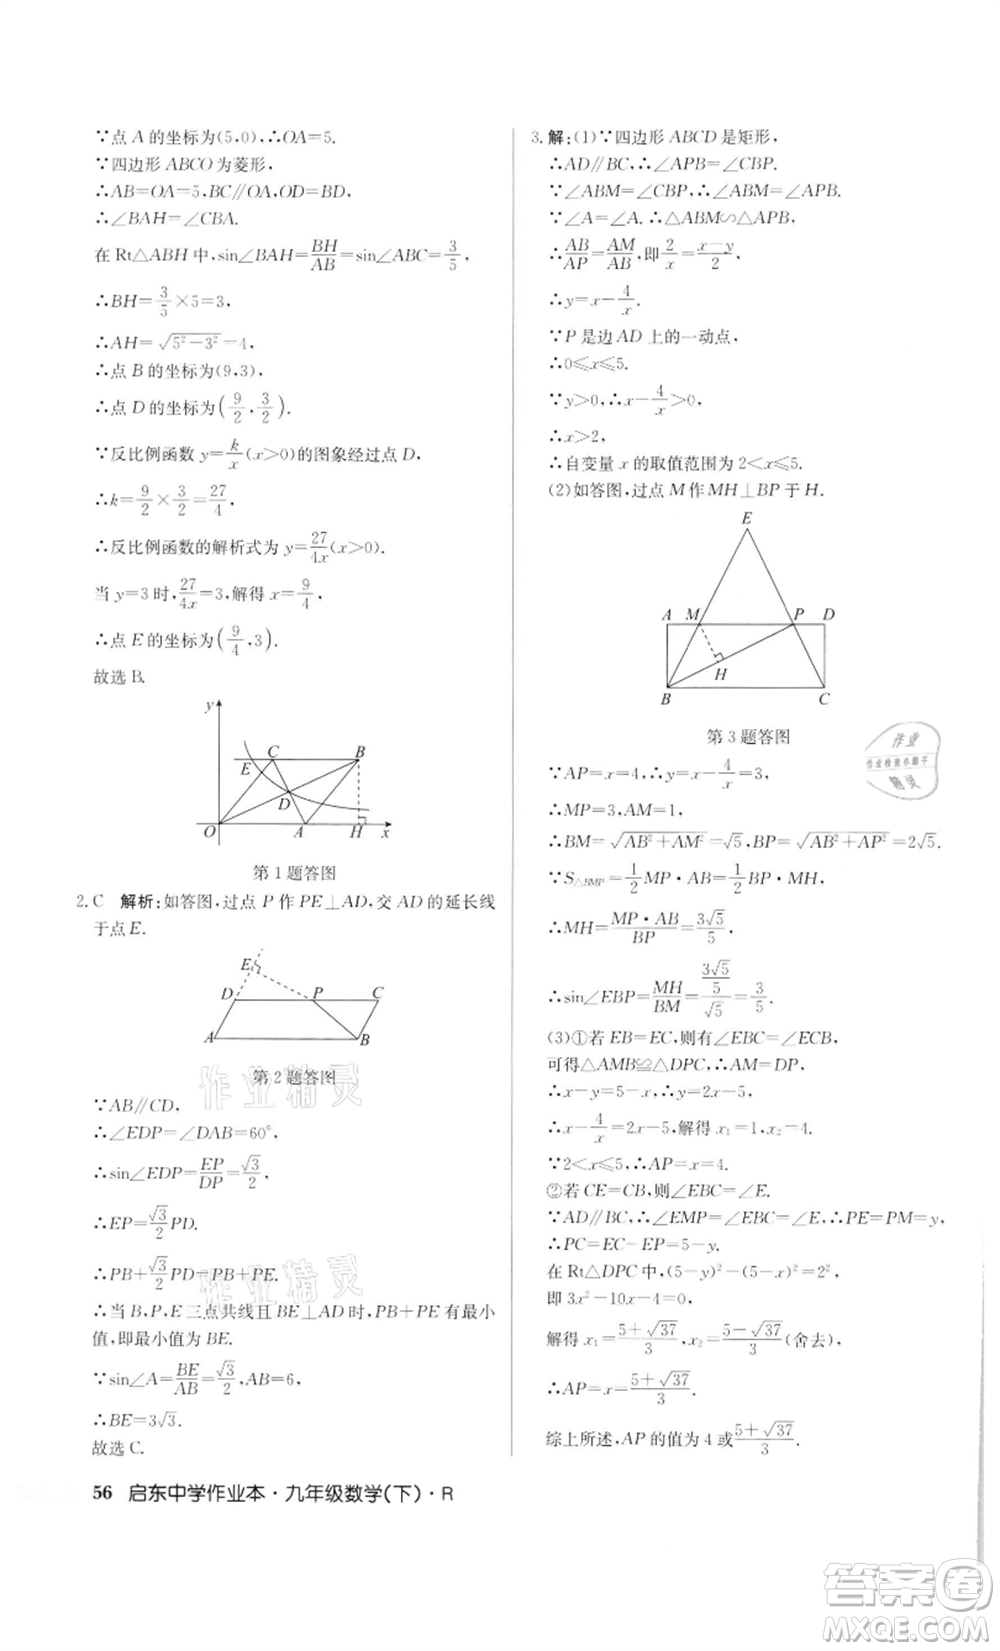 ∵点 A 的坐标为(5,0),∴OA=5.
∵四边形 ABCO 为菱形,
∴AB=OA=5,BC∥OA,OD=BD,
∴∠BAH=∠CBA.
在 Rt△ABH 中,sin∠BAH=BH/AB=sin∠CBA=3/5,
∴BH=3/5×5=3,
∴AH=√(5²-3²)=4,
∴点 B 的坐标为(9,3),
∴点 D 的坐标为(9/2,3/2).
∵反比例函数 y=k/x(x>0)的图象经过点 D,
∴k=9/2×3/2=27/4,
∴反比例函数的解析式为 y=27/4x(x>0).
当 y=3 时,27/4x=3,解得 x=9/4,
∴点 E 的坐标为(9/4,3).
故选 B.
y
C
B
E
D
O
A
H
x
第 1 题答图
2. C 解析:如答图,过点 P 作 PE⊥AD,交 AD 的延长线
于点 E.
E
D
P
C
A
B
第 2 题答图
∵AB∥CD,
∴∠EDP=∠DAB=60°,
∴sin∠EDP=EP/DP=√3/2,
∴EP=√3/2PD.
∴PB+√3/2PD=PB+PE.
∴当 B,P,E 三点共线且 BE⊥AD 时,PB+PE 有最小
值,即最小值为 BE.
∵sin∠A=BE/AB=√3/2,AB=6,
∴BE=3√3.
故选 C.
3. 解:(1)∵四边形 ABCD 是矩形,
∴AD∥BC,∴∠APB=∠CBP.
∵∠ABM=∠CBP,∴∠ABM=∠APB.
∵∠A=∠A,∴△ABM∽△APB,
∴AB/AP=AM/AB,即2/x=x-y/2,
∴y=x-4/x.
∵P 是边 AD 上的一动点,
∴0≤x≤5.
∵y>0,∴x-4/x>0,
∴x>2,
∴自变量 x 的取值范围为 2<x≤5.
(2)如答图,过点 M 作 MH⊥BP 于 H.
E
A
M
P
D
H
B
C
第 3 题答图
∵AP=x=4,∴y=x-4/x=3,
∴MP=3,AM=1,
∴BM=√(AB²+AM²)=√5,BP=√(AB²+AP²)=2√5.
∵S△BMP=1/2MP·AB=1/2BP·MH,
∴MH=MP·AB/BP=3√5/5,
∴sin∠EBP=MH/BM=(3√5/5)/√5=3/5.
(3)①若 EB=EC,则有∠EBC=∠ECB,
可得△AMB≌△DPC,∴AM=DP,
∴x-y=5-x,∴y=2x-5,
∴x-4/x=2x-5,解得 x₁=1,x₂=4.
∵2<x≤5,∴AP=x=4.
②若 CE=CB,则∠EBC=∠E.
∵AD∥BC,∴∠EMP=∠EBC=∠E,∴PE=PM=y,
∴PC=EC-PE=5-y.
在 Rt△DPC 中,(5-y)²-(5-x)²=4,
即 3x²-10x-4=0,
解得 x₁=5+√37/3,x₂=5-√37/3(舍去),
∴AP=x=5+√37/3.
综上所述,AP 的值为 4 或5+√37/3.
56 启东中学作业本·九年级数学(下)·R
作业精灵
作业精灵
作业
精灵
答案卷
MXQE.COM